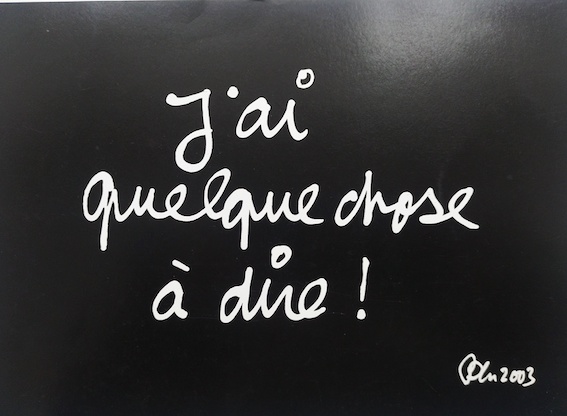 J'ai
quelque chose
à dire !
2003